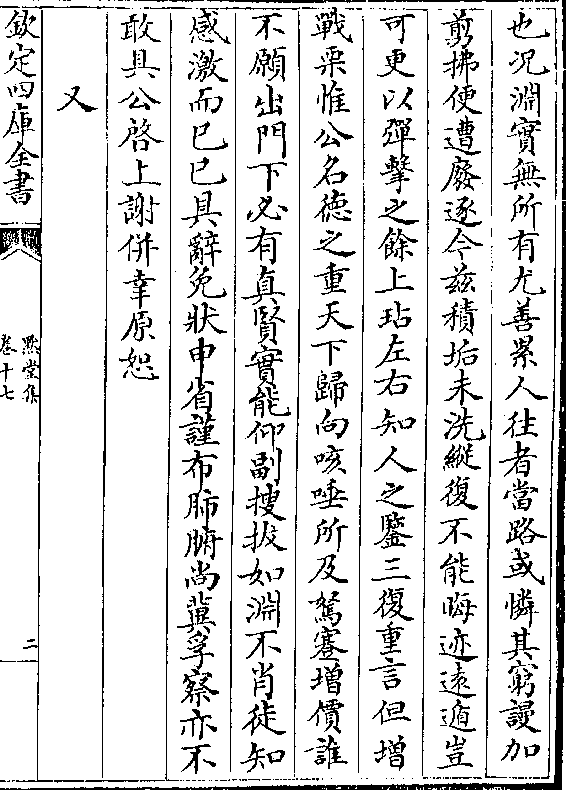 也况淵實無所有尤善累人往者當路或憐其窮謾加
剪拂便遭廢逐今兹積垢未洗縱復不能晦迹逺遁豈
可更以彈擊之餘上玷左右知人之鑒三復重言但增
戰栗惟公名徳之重天下歸向咳唾所及駑蹇增價誰
不願出門下必有真賢實能仰副搜拔如淵不肖徒知
感激而已已具辭免狀申省謹布肺腑尚冀孚察亦不
敢具公啓上謝併幸原恕
又
欽定四庫全書
黙堂集
卷十七
二